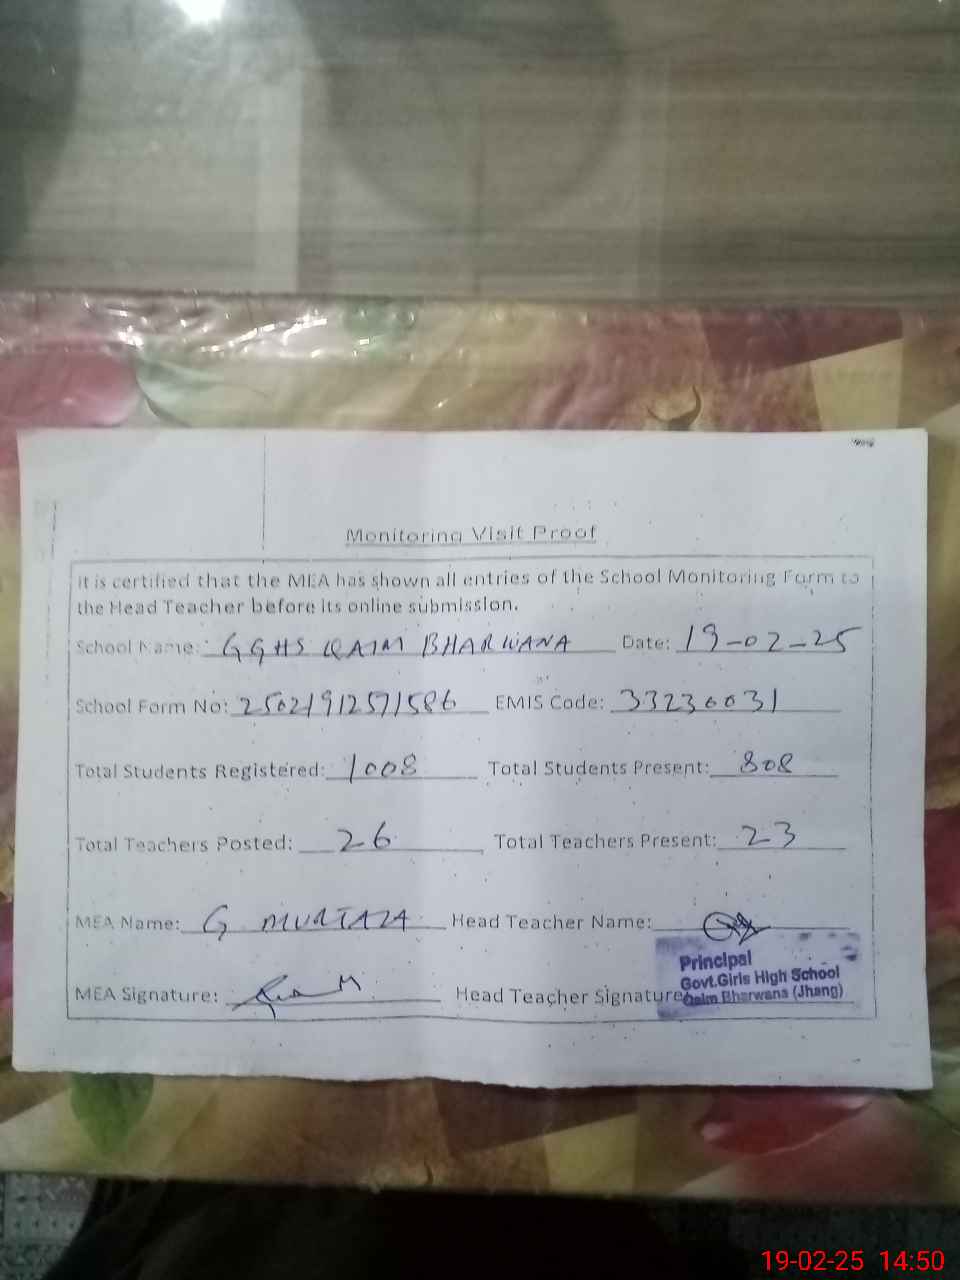 Monitoring Visit Proof
It is certified that the MEA has shown all entries of the School Monitoring Form to
the Head Teacher before its online submission.
School Name: GGHS QAIM BHARWANA Date: 19-02-25
School Form No: 25021912571586 EMIS Code: 33230031
Total Students Registered: 1008 Total Students Present: 808
Total Teachers Posted: 26 Total Teachers Present: 23
MEA Name: G MURTAZA Head Teacher Name:
Principal
Govt.Girls High School
MEA Signature: Head Teacher Signature
Qaim Bharwana (Jhang)
19-02-25 14:50